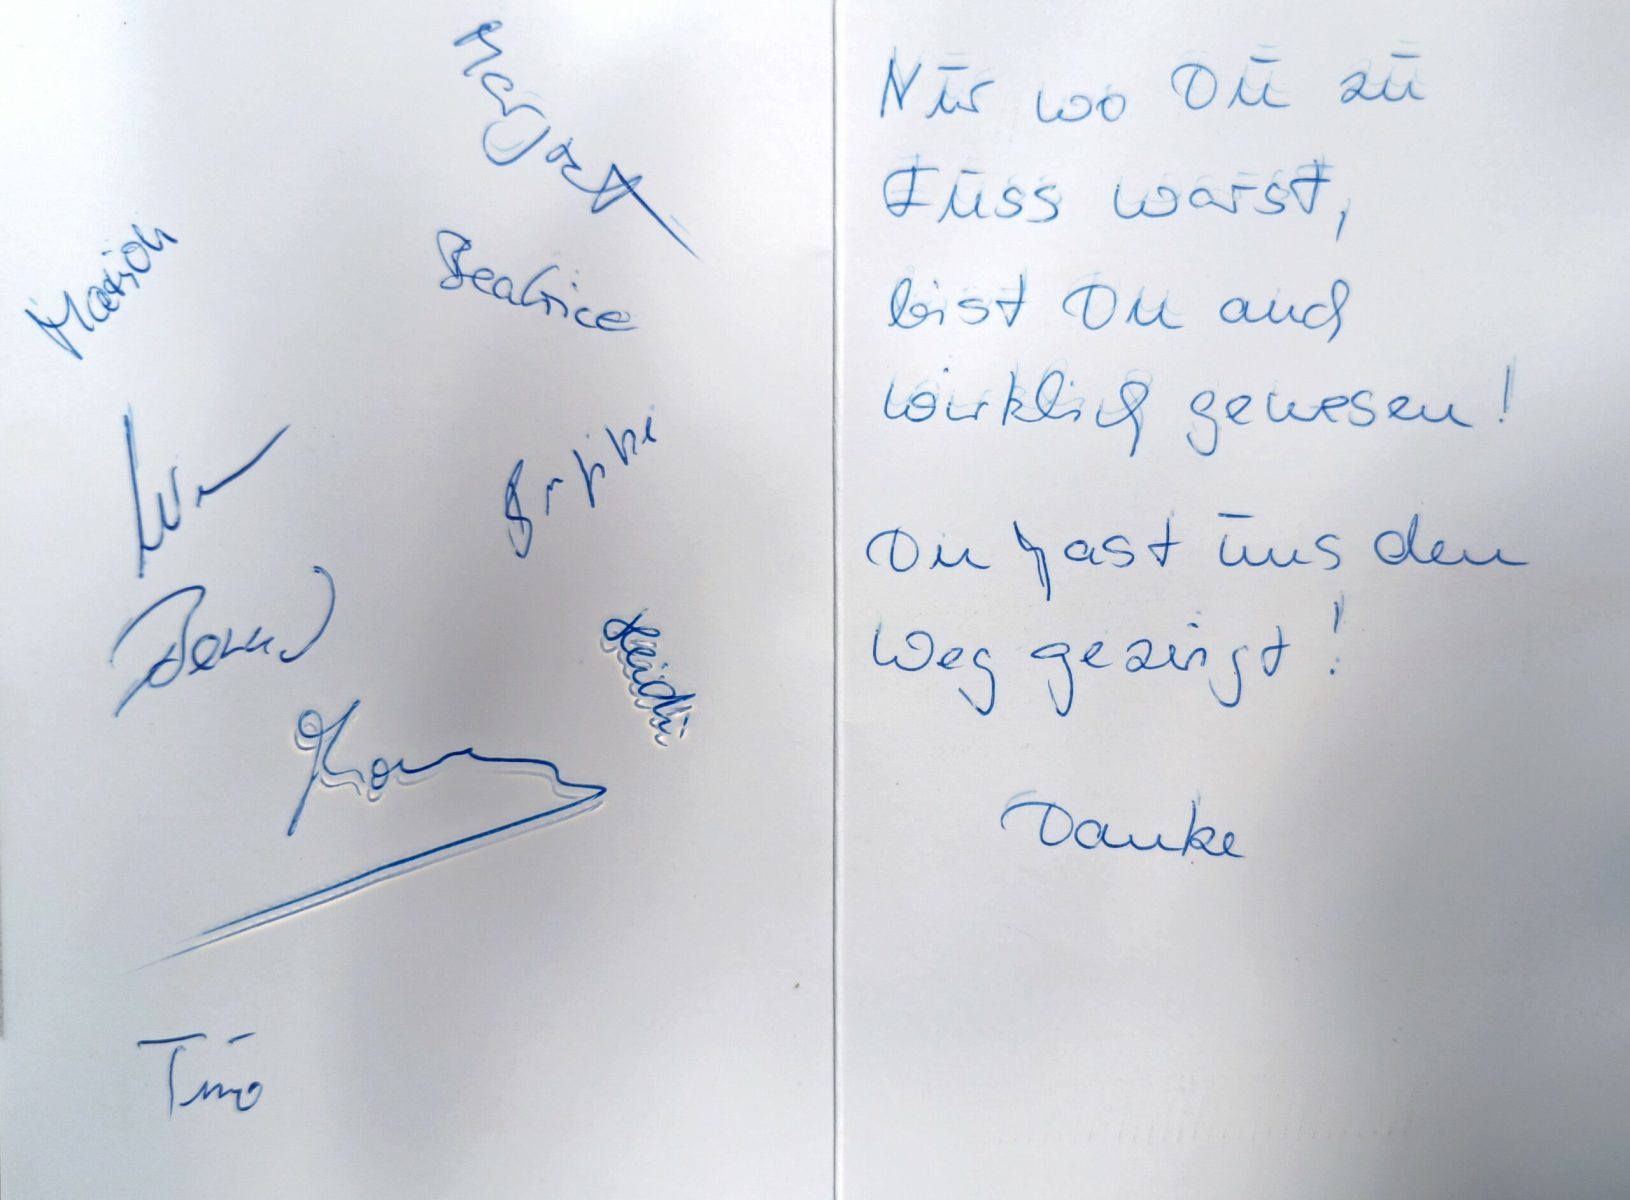 Margaret
Beatrice
Marion
Brigitte
Bernd
Heidi
Thomas
Tino
Nur wo Du zu
Fuss warst,
bist Du auch
wirklich gewesen!
Du hast uns den
Weg gezeigt!
Danke